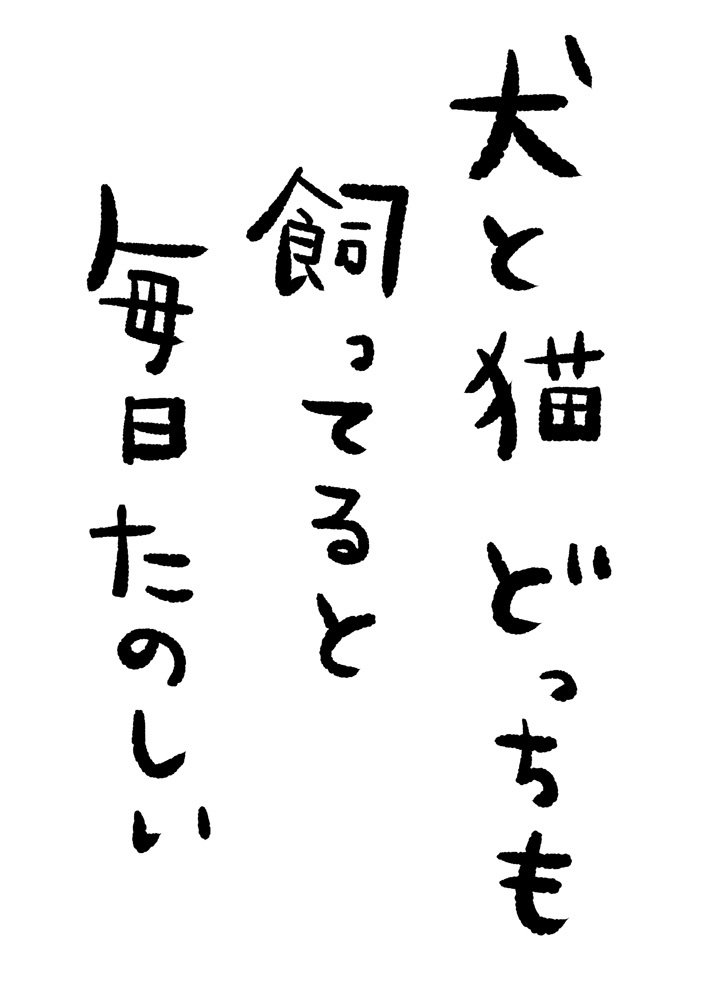 犬と猫どっちも
飼ってると
毎日たのしい